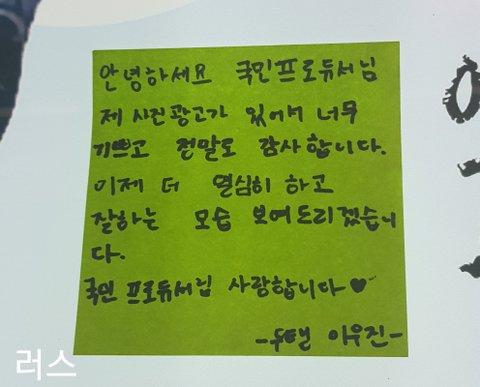 안녕하세요 국민프로듀서님
제 사진광고가 있어서 너무
기쁘고 정말로 감사합니다.
이제 더 열심히 하고
잘하는 모습 보여드리겠습니
다.
국민 프로듀서님 사랑합니다♥
이우진-
러스